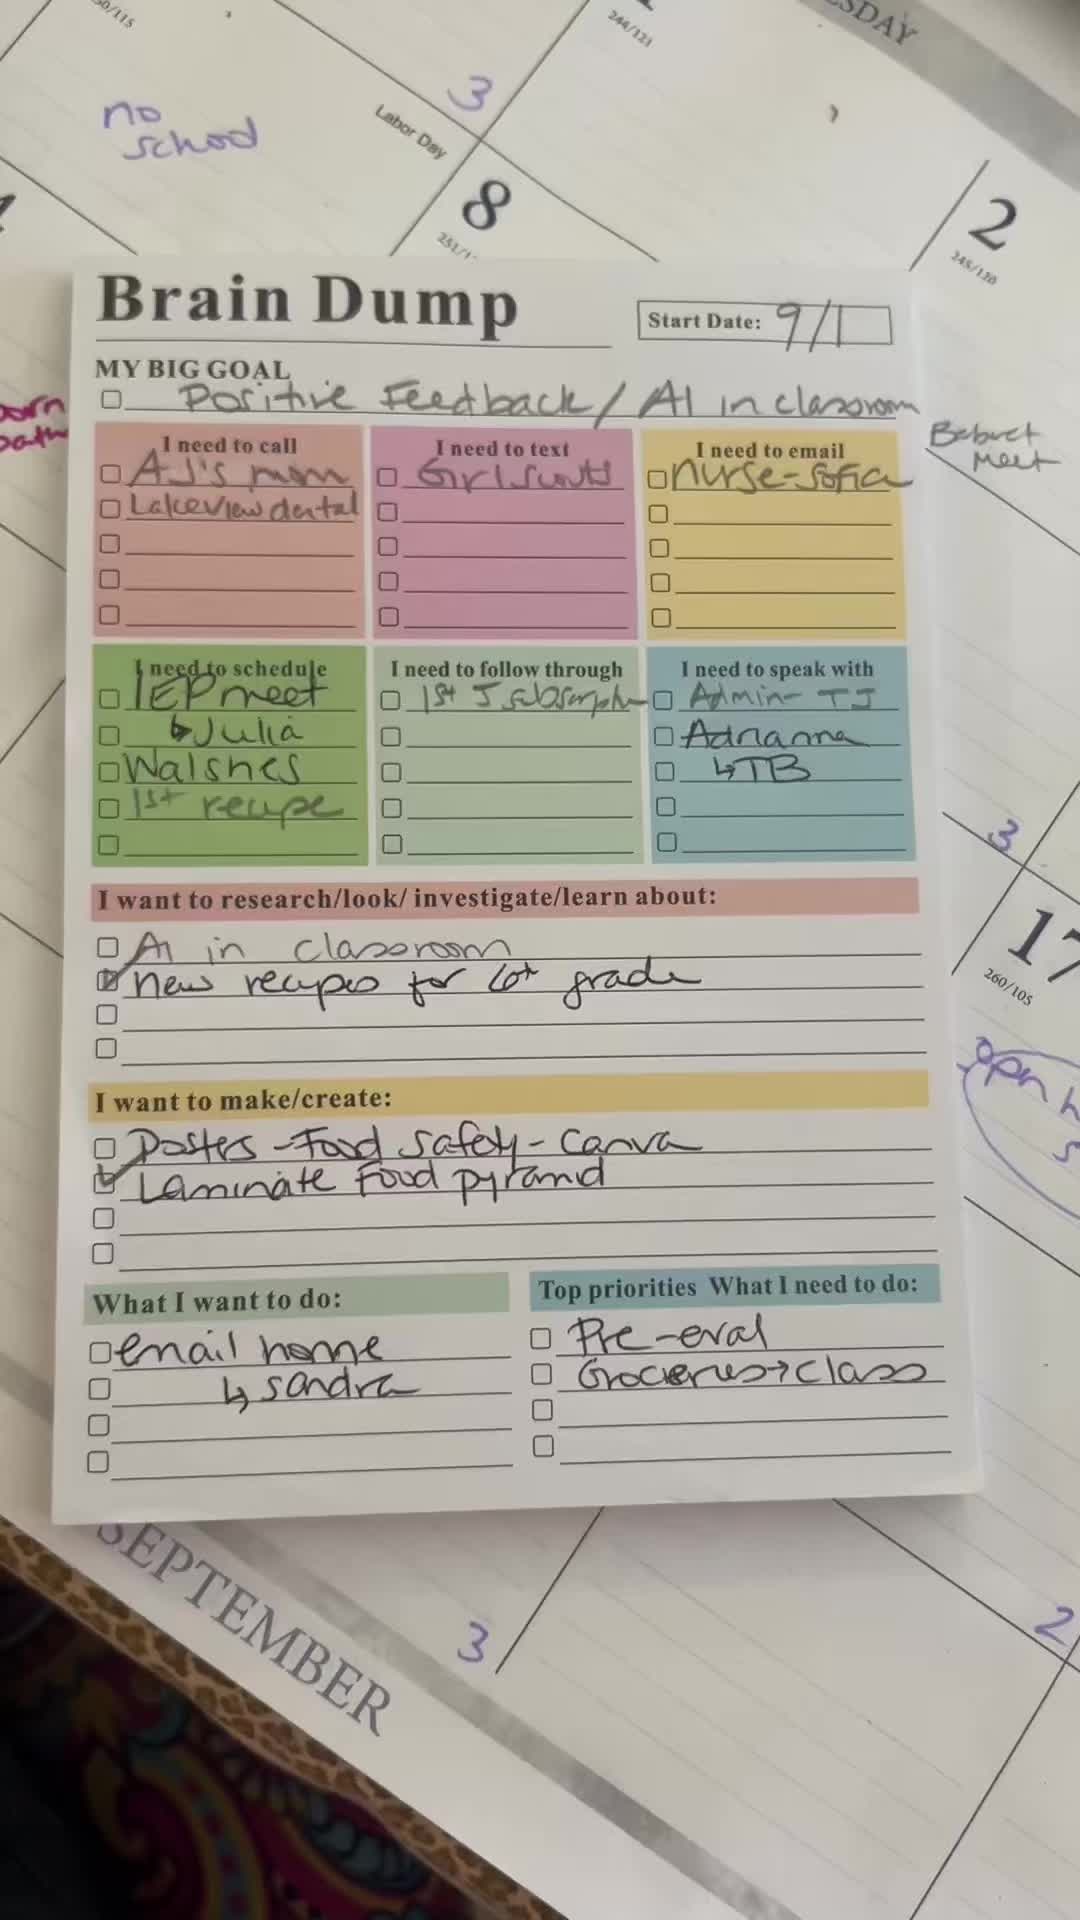 no
school
3
Labor Day
244/121
8
2
245/120
Brain Dump
Start Date: 9/1
MY BIG GOAL
Positive Feedback / AI in classroom
I need to call
AJ's mom
Lakeview dental
I need to text
Girl scouts
I need to email
Nurse-Sofia
meet
I need to schedule
IEP meet
↳Julia
Walshes
1st recipe
I need to follow through
1st J
I need to speak with
Admin- TJ
Adrianna
↳TB
3
17
260/105
I want to research/look/ investigate/learn about:
AI in classroom
New recipes for 6th grade
open
I want to make/create:
Posters -Food Safety- Canva
Laminate Food pyramid
What I want to do:
email home
↳ Sandra
Top priorities What I need to do:
Pre-eval
Groceries→class
SEPTEMBER
3
2